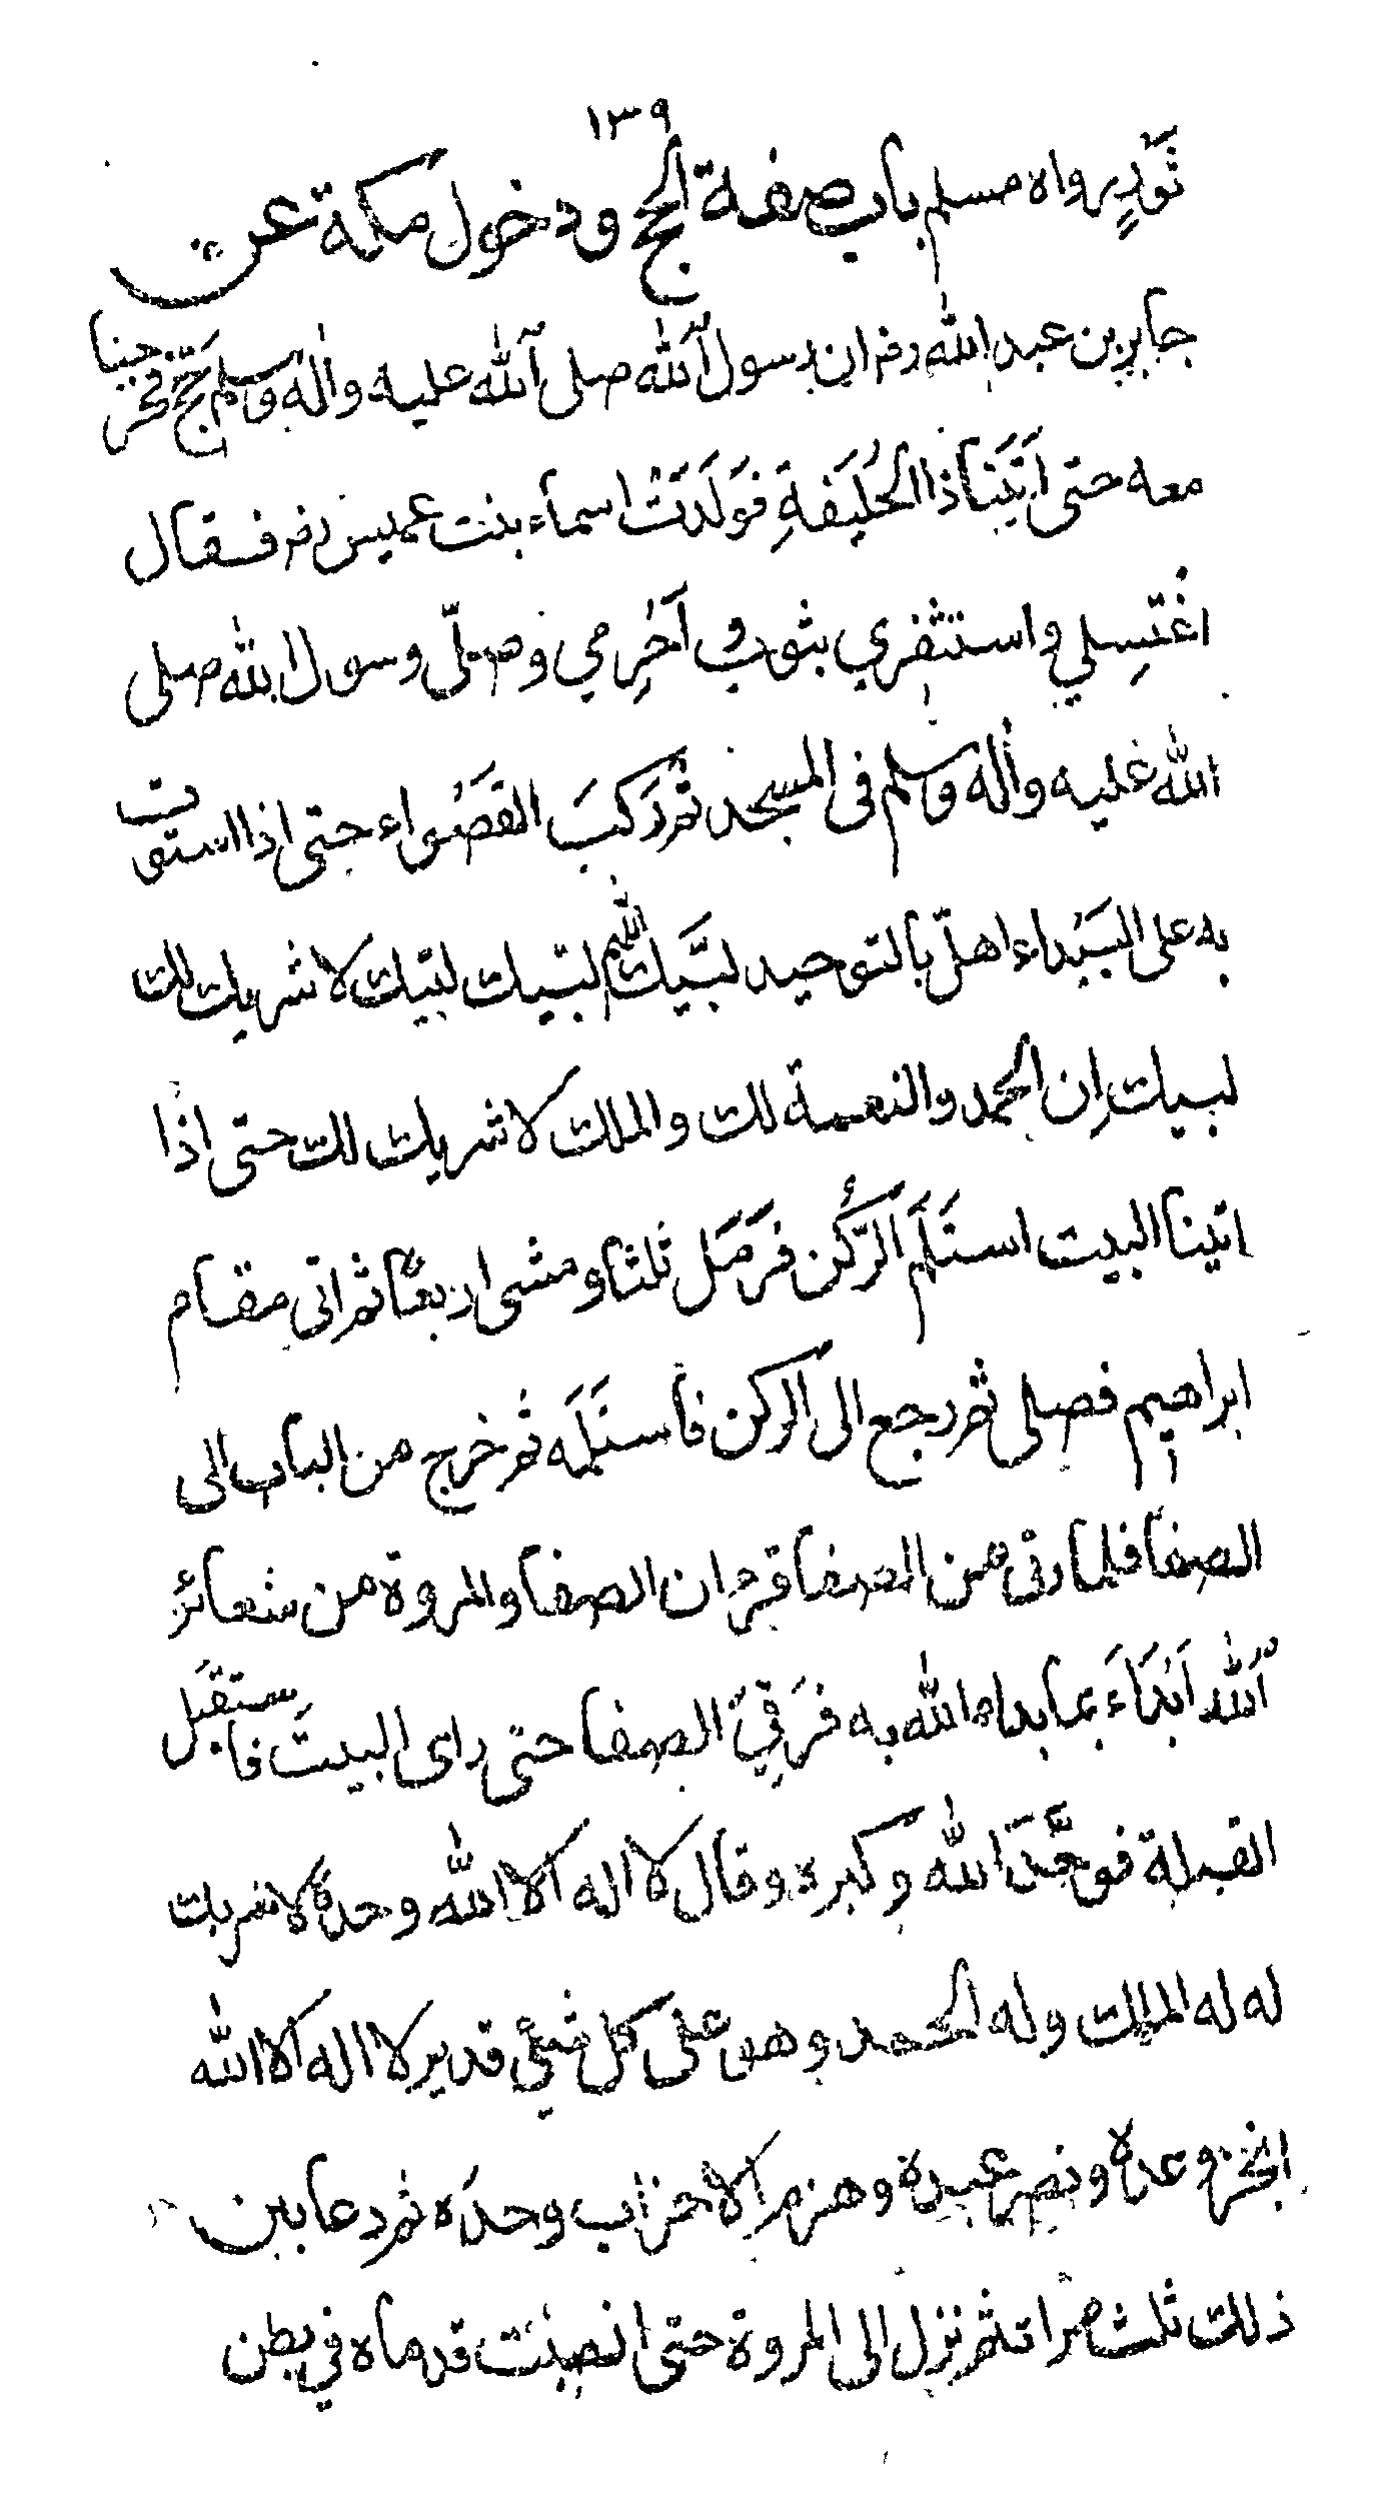 ١٣٩
ثَوْرٍ رواه مسلم باب صفة الحج ودخول مكة عن
جابر بن عبد الله رضـ ان رسول الله صلى الله عليه واله وسلم حَجَّ فخرجنا
معه حتى اَتَيْنَا ذا الحُلَيْفَةِ فَوَلَدَتْ اسماء بنت عميس رضـ فقال
اغْتَسِلي واستثفري بثوب و اَحْرِمي وصلّى رسول الله صلى
الله عليه واله وسلم فى المسجد ثم رَكبَ القَصْواء حتى اذا استوت
به على البَيْداء اهلّ بالتوحيد لبَّيك اللهم لبّيك لبّيك لا شريك لك
لبيك اِن الحمد والنعمة لك والملك لا شريك لك حتى اذا
اتينا البيت استَلَمَ الرُّكن فرَمَل ثلثا ومشى اربعًا ثم اتى مقام
ابراهيم فصلى ثم رجع الى الركن فاستَلَمَه ثم خرج من الباب الى
الصفا فلما دنى من الصفا قرء ان الصفا والمروة من شعائر
الله اَبْدَاءَ بما بداء الله به فرَقِيَ الصفا حتى راى البيتَ فاستقبَل
القبلة فوحَّدَ الله وكبره وقال لا اله الا الله وحدهُ لا شريك
له له الملك وله الحمد وهو على كل شيئ قدير لا اله الا الله
انجز وعده ونصر عبده وهزم الاحزاب وحدَه ثم دعا بين
ذلك ثلث مرات ثم نزل الى المروة حتى انصبّت قدماه في بطن